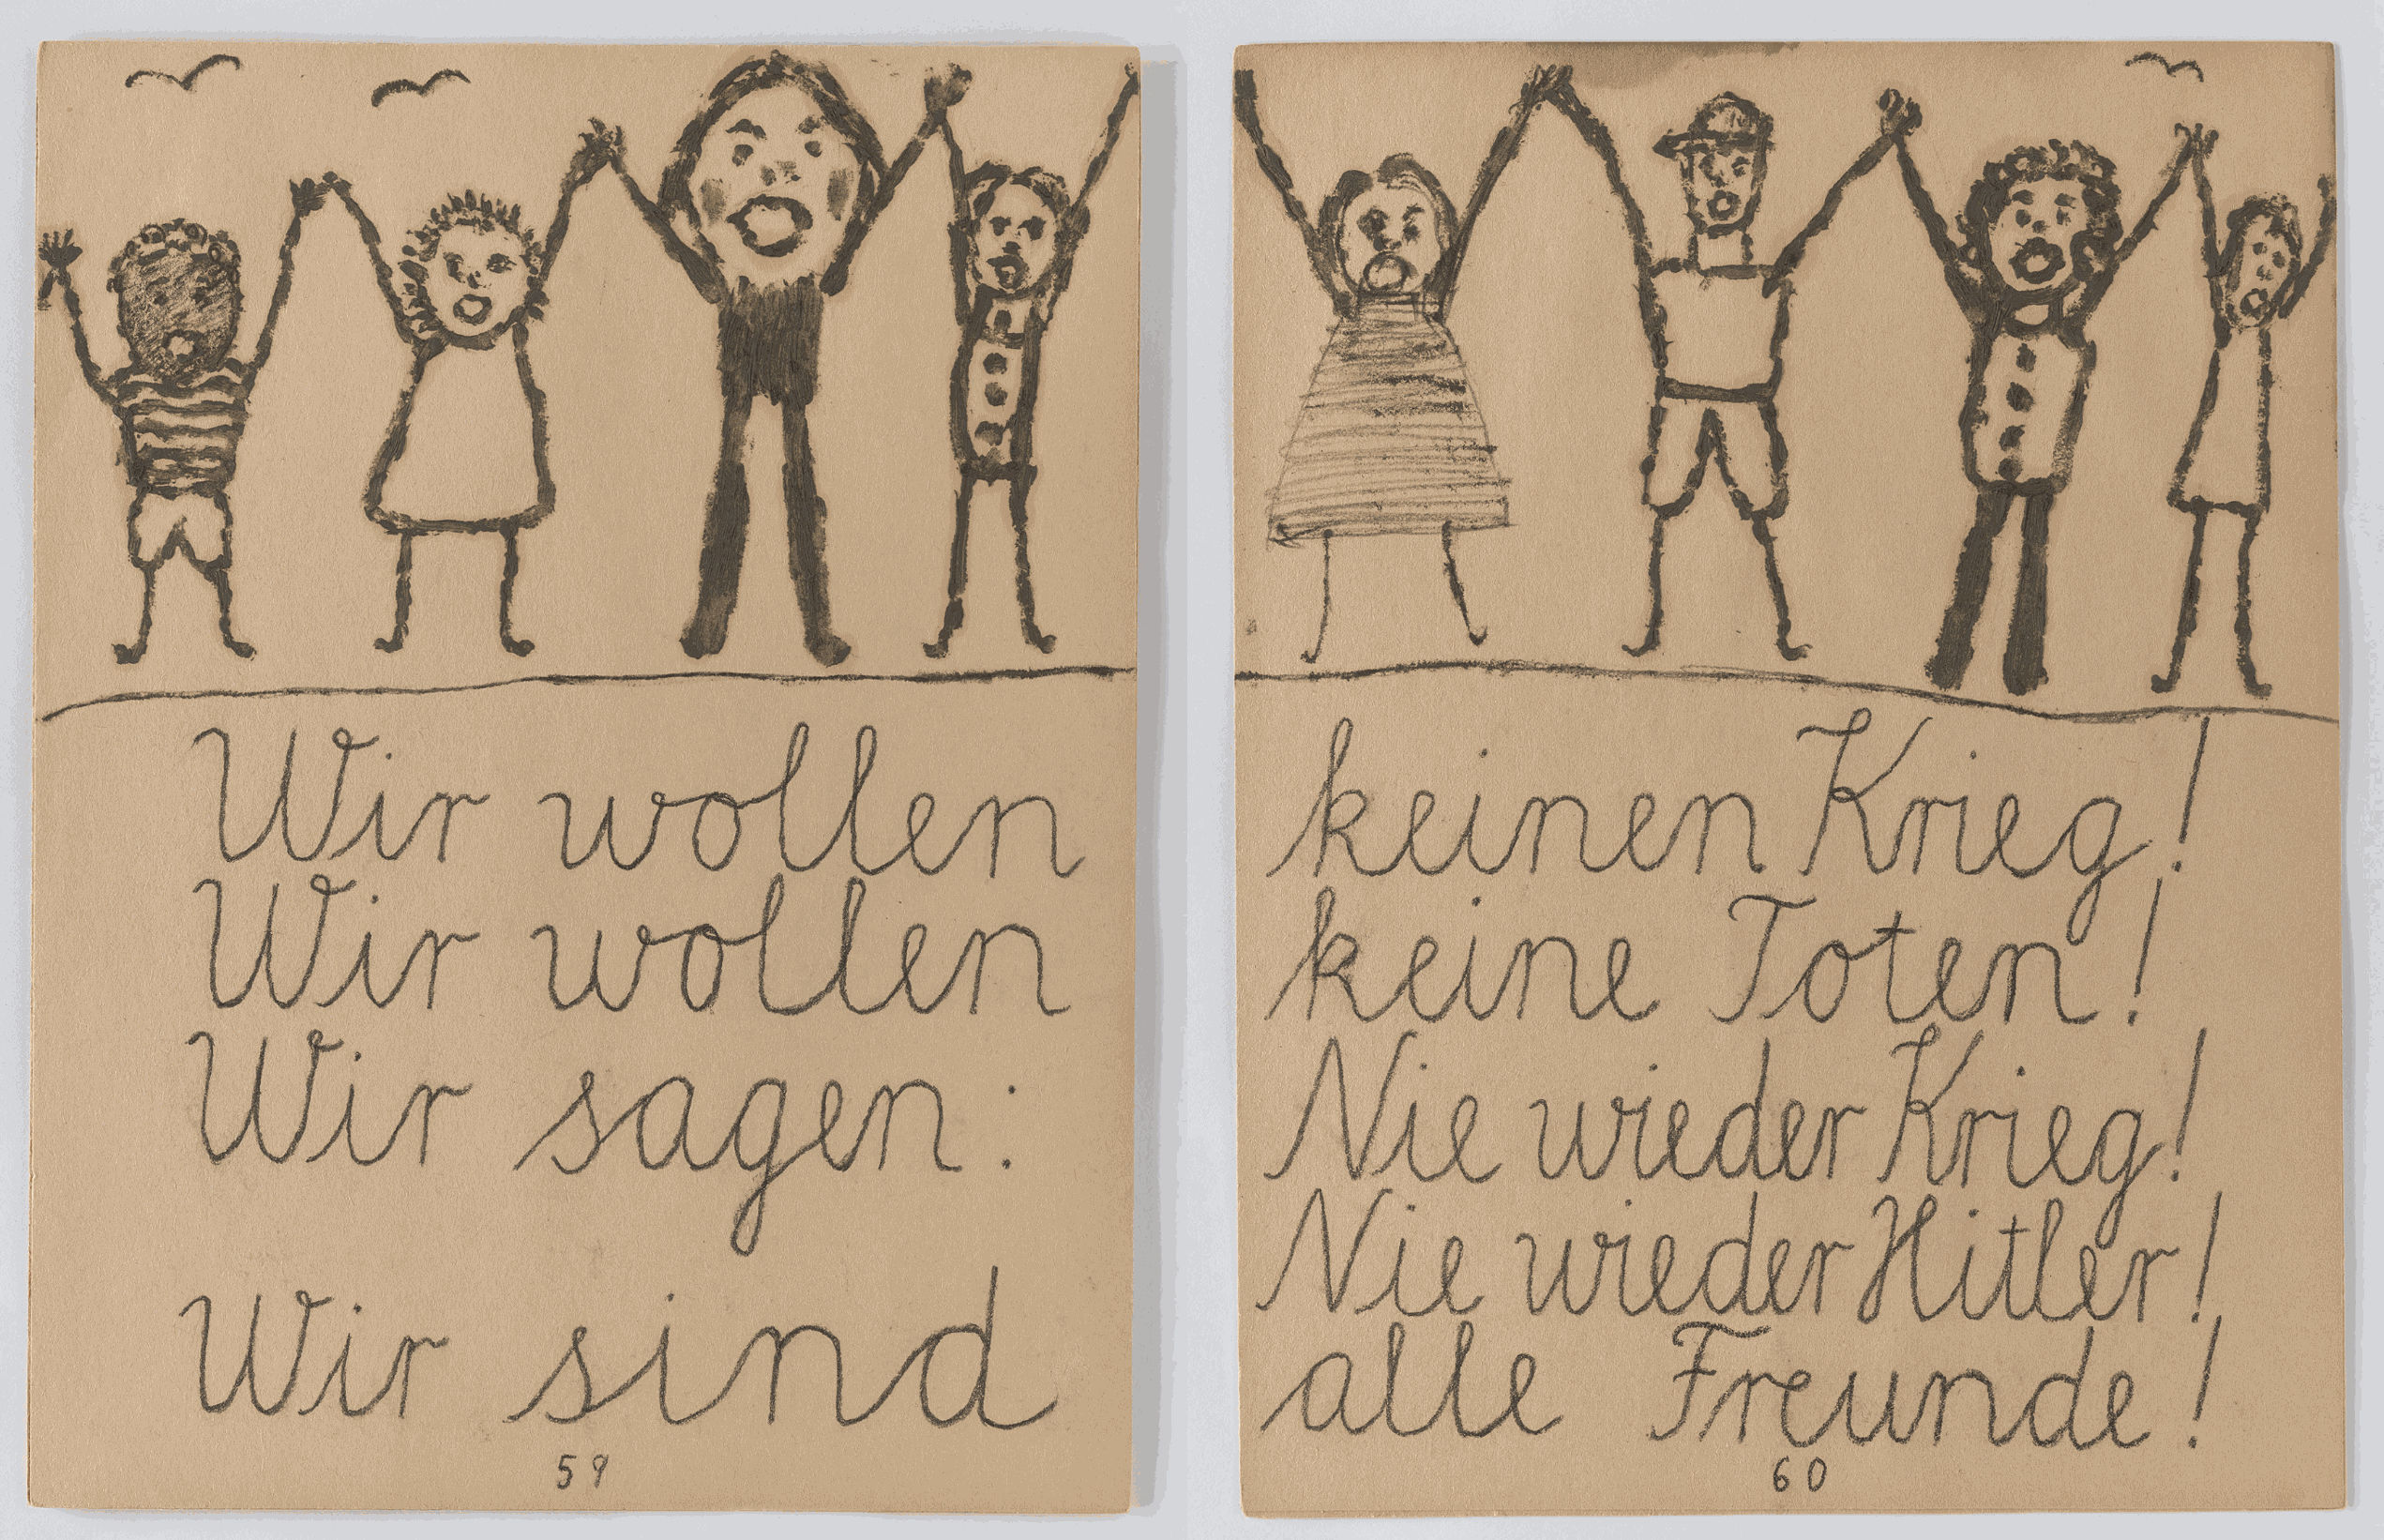 Wir wollen keinen Krieg!
Wir wollen keine Toten!
Wir sagen: Nie wieder Krieg!
Nie wieder Hitler!
Wir sind alle Freunde!
59 60